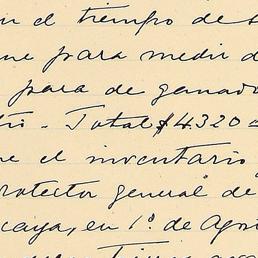 el tiempo de
para medir
para de ganado
Total $4320
el inventario
protector general de
caya, en 1º de Ago